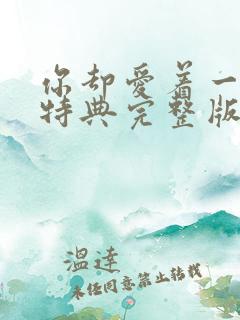 你却爱着一
特典完整版
温達
未任同意禁止转载